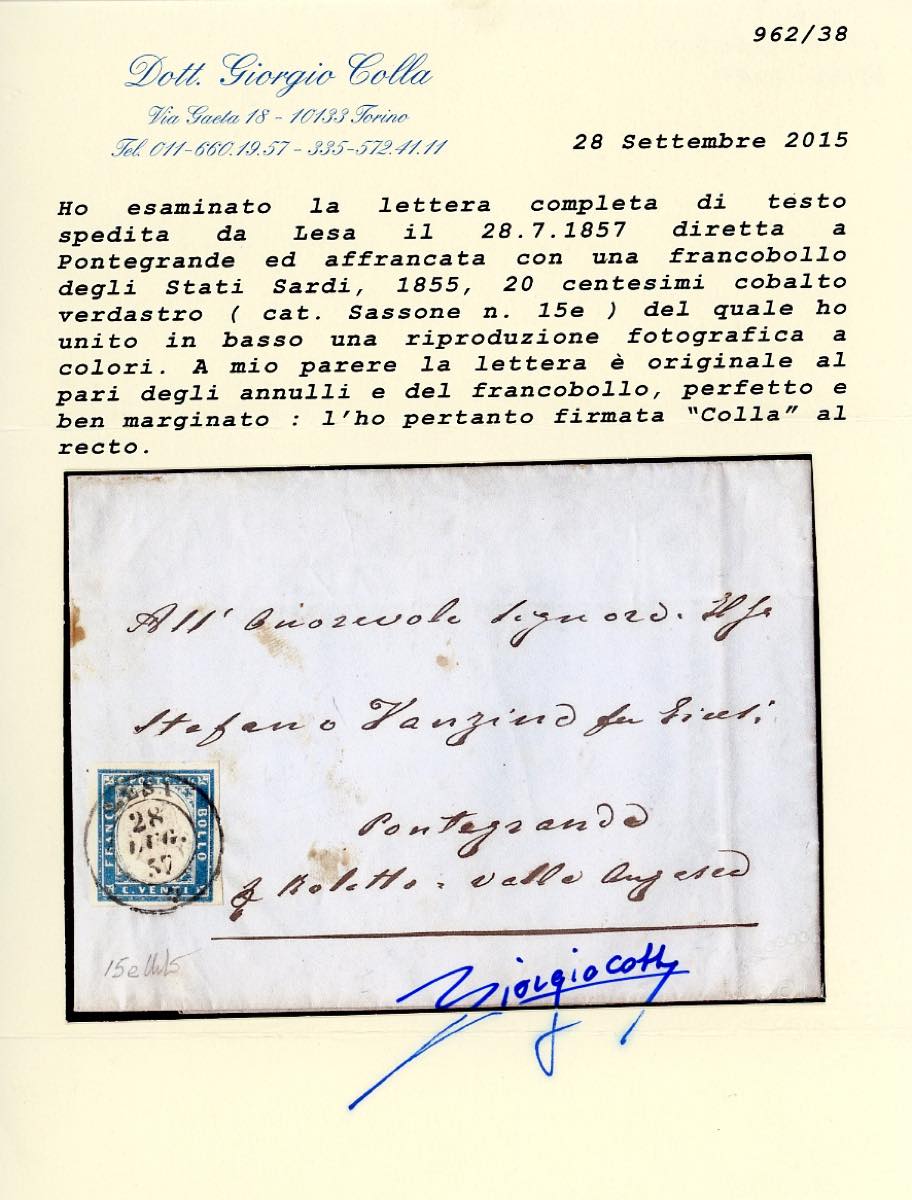 962/38
Dott. Giorgio Colla
Via Gaeta 18 - 10133 Torino
Tel. 011-660.19.57 - 335-572.41.11
28 Settembre 2015
Ho esaminato la lettera completa di testo
spedita da Lesa il 28.7.1857 diretta a
Pontegrande ed affrancata con una francobollo
degli Stati Sardi, 1855, 20 centesimi cobalto
verdastro ( cat. Sassone n. 15e ) del quale ho
unito in basso una riproduzione fotografica a
colori. A mio parere la lettera è originale al
pari degli annulli e del francobollo, perfetto e
ben marginato : l'ho pertanto firmata “Colla” al
recto.
All' Onorevole Signore
Stefano Vanzino
Pontegrande
Valle
FRANCO
POSTE
BOLLO
C. VENTI
LESA
28
LUG.
57
15e
Giorgio Colla